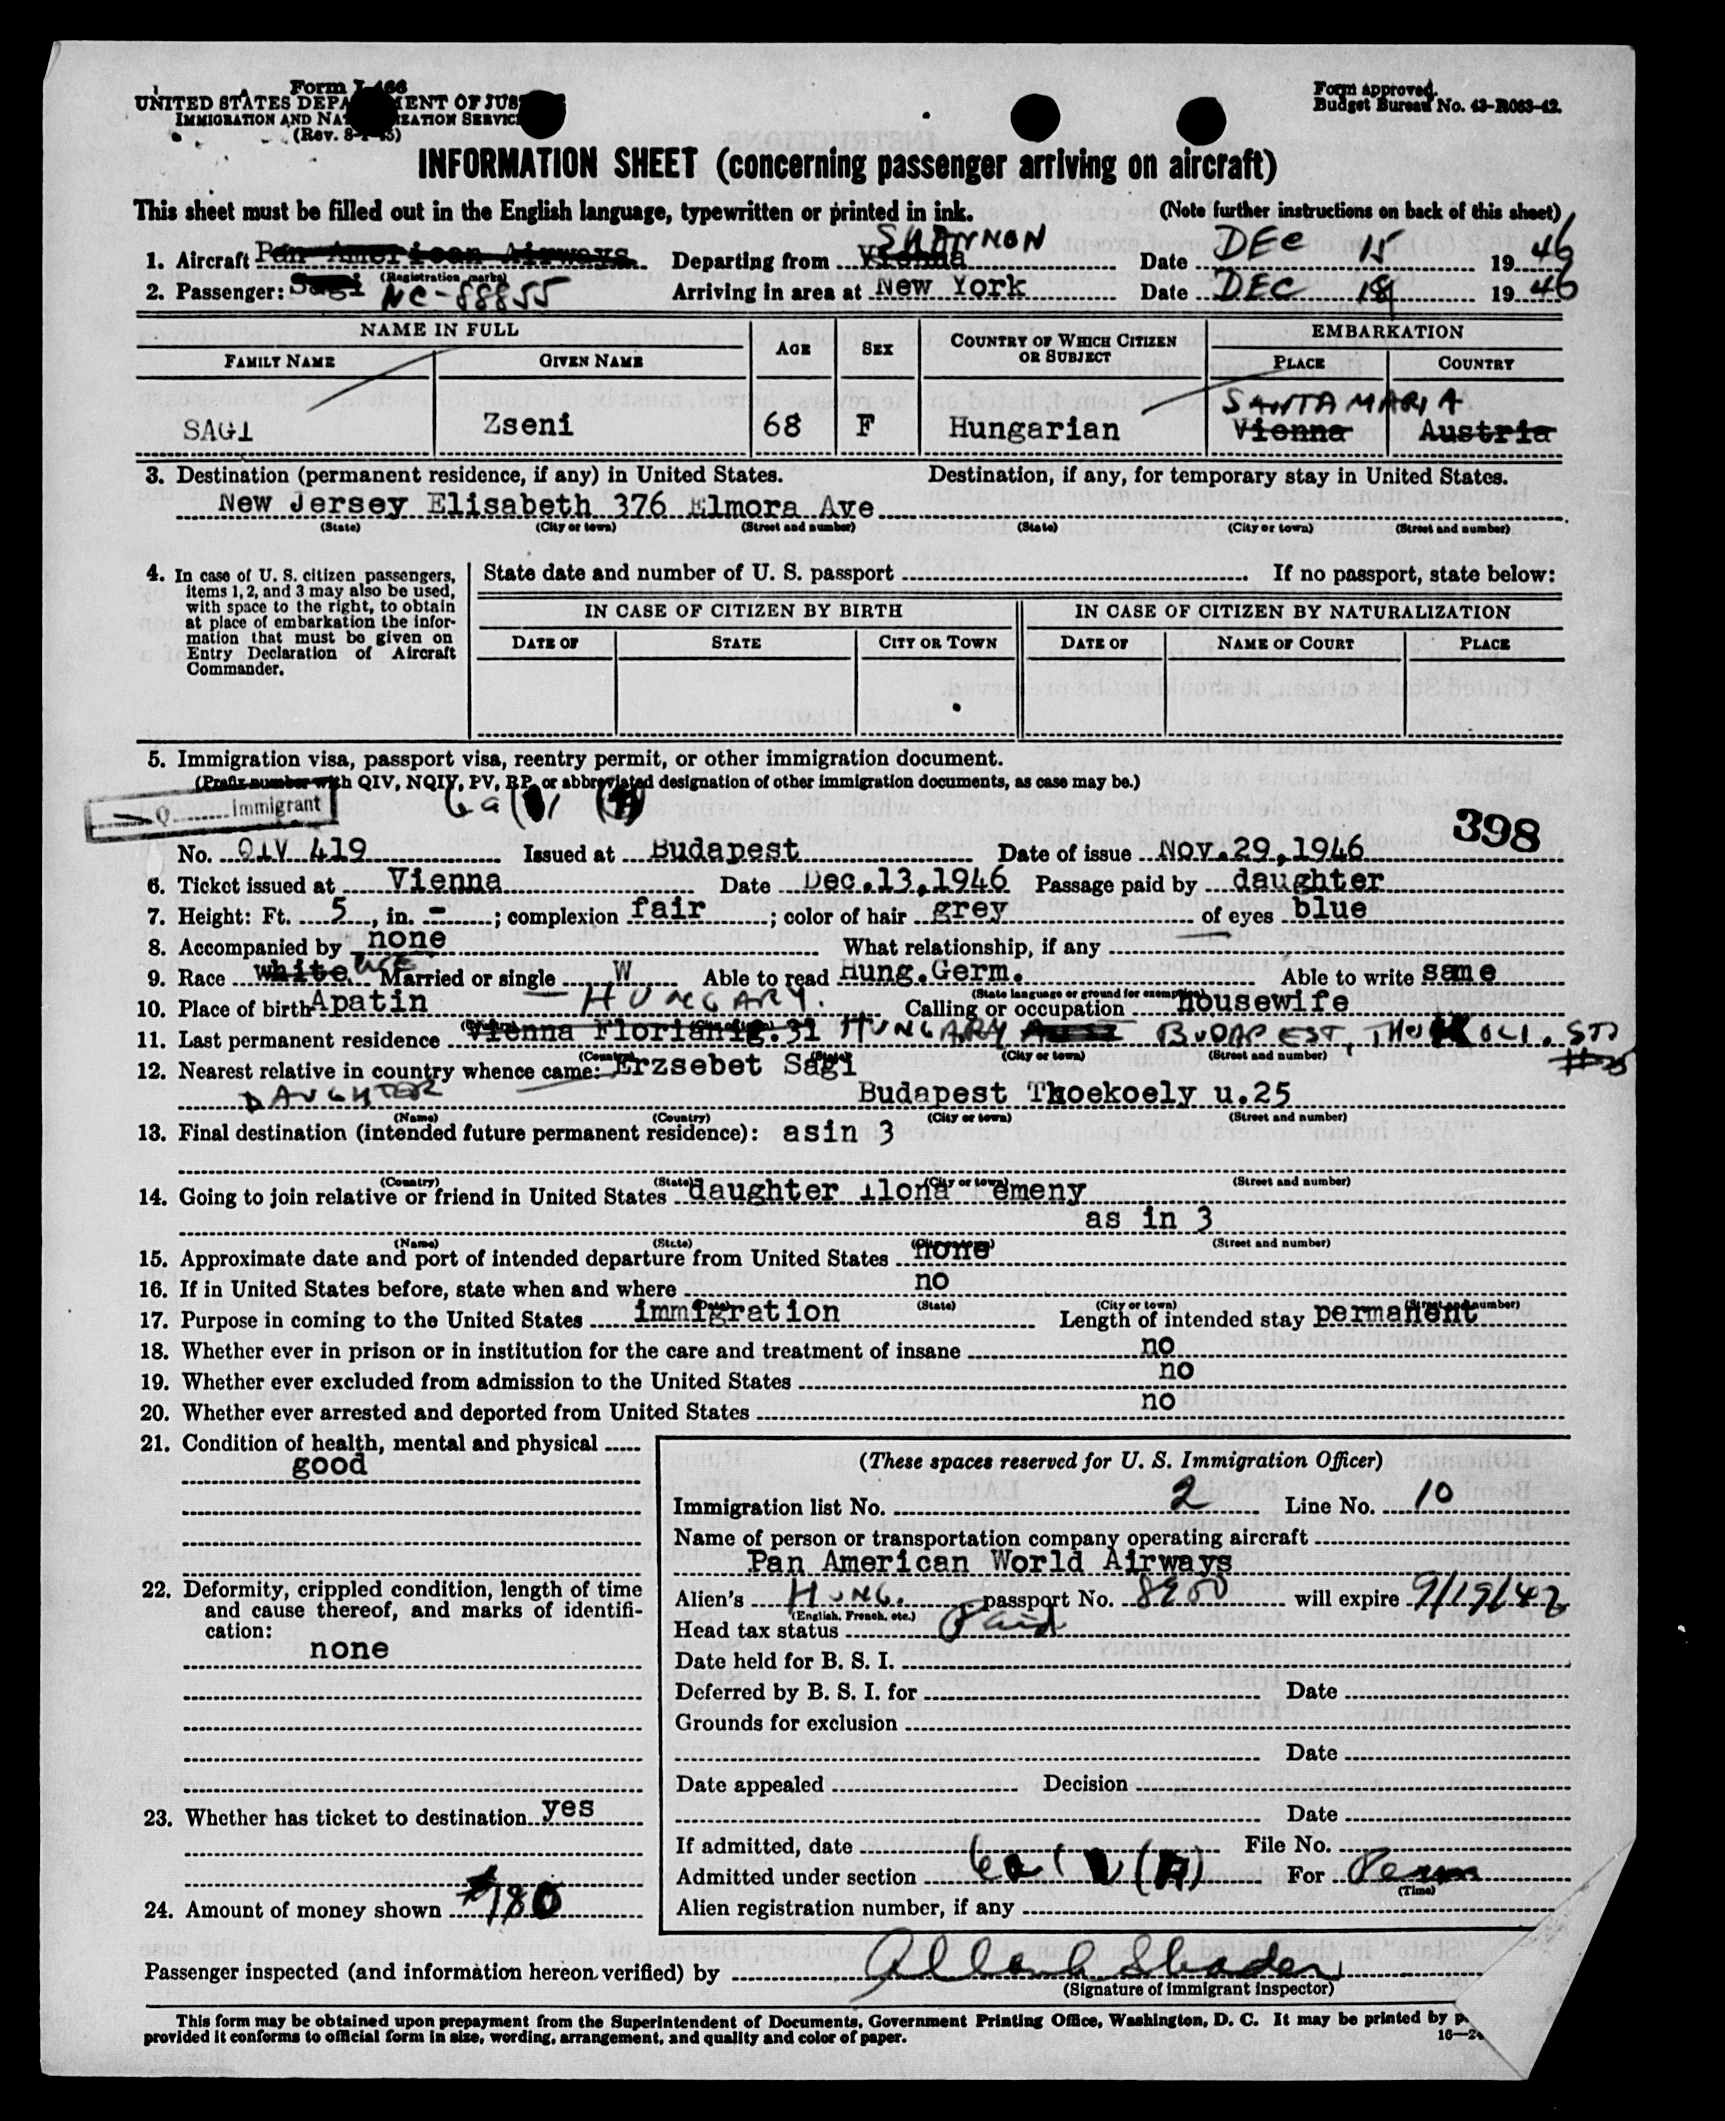 Form I-466
UNITED STATES DEPARTMENT OF JUSTICE
IMMIGRATION AND NATURALIZATION SERVICE
(Rev. 8-1-45)
Form approved.
Budget Bureau No. 43-R063-42.
INFORMATION SHEET (concerning passenger arriving on aircraft)
This sheet must be filled out in the English language, typewritten or printed in ink. (Note further instructions on back of this sheet)
SHANNON
1. Aircraft Pan American Airways Departing from Vienna Date DEC 15 1946
(Registration marks)
2. Passenger: Sagi NC-88855 Arriving in area at New York Date DEC 1946
NAME IN FULL AGE SEX COUNTRY OF WHICH CITIZEN OR SUBJECT EMBARKATION
FAMILY NAME GIVEN NAME PLACE COUNTRY
SANTA MARIA
SAGI Zseni 68 F Hungarian Vienna Austria
3. Destination (permanent residence, if any) in United States. Destination, if any, for temporary stay in United States.
New Jersey Elisabeth 376 Elmora Ave
(State) (City or town) (Street and number) (State) (City or town) (Street and number)
4. In case of U. S. citizen passengers, items 1, 2, and 3 may also be used, with space to the right, to obtain at place of embarkation the information that must be given on Entry Declaration of Aircraft Commander.
State date and number of U. S. passport If no passport, state below:
IN CASE OF CITIZEN BY BIRTH IN CASE OF CITIZEN BY NATURALIZATION
DATE OF STATE CITY OR TOWN DATE OF NAME OF COURT PLACE
5. Immigration visa, passport visa, reentry permit, or other immigration document.
(Prefix number with QIV, NQIV, PV, RP, or abbreviated designation of other immigration documents, as case may be.)
Q Immigrant
398
No. QIV 419 Issued at Budapest Date of issue Nov.29,1946
6. Ticket issued at Vienna Date Dec.13,1946 Passage paid by daughter
7. Height: Ft. 5, in. -; complexion fair; color of hair grey of eyes blue
8. Accompanied by none What relationship, if any
9. Race white Married or single W Able to read Hung.Germ. Able to write same
(State language or ground for exemption)
10. Place of birth Apatin - HUNGARY. Calling or occupation housewife
11. Last permanent residence Vienna Florianig.31 HUNGARY BUDAPEST,
(Country) (State) (City or town) (Street and number)
12. Nearest relative in country whence came: Erzsebet Sagi
DAUGHTER Budapest Thoekoely u.25
(Name) (Country) (City or town) (Street and number)
13. Final destination (intended future permanent residence): asin 3
(Country) (State) (City or town) (Street and number)
14. Going to join relative or friend in United States daughter Ilona Kemeny
as in 3
(Name) (State) (City or town) (Street and number)
15. Approximate date and port of intended departure from United States none
16. If in United States before, state when and where no
(Date) (State) (City or town) (Street and number)
17. Purpose in coming to the United States immigration Length of intended stay permanent
18. Whether ever in prison or in institution for the care and treatment of insane no
19. Whether ever excluded from admission to the United States no
20. Whether ever arrested and deported from United States no
21. Condition of health, mental and physical
good
22. Deformity, crippled condition, length of time and cause thereof, and marks of identification:
none
23. Whether has ticket to destination yes
24. Amount of money shown $180
(These spaces reserved for U. S. Immigration Officer)
Immigration list No. 2 Line No. 10
Name of person or transportation company operating aircraft
Pan American World Airways
Alien's HUNG. passport No. will expire
(English, French, etc.)
Head tax status Paid
Date held for B. S. I.
Deferred by B. S. I. for Date
Grounds for exclusion
Date
Date appealed Decision
Date
If admitted, date File No.
Admitted under section For Perm
(Time)
Alien registration number, if any
Passenger inspected (and information hereon verified) by
(Signature of immigrant inspector)
This form may be obtained upon prepayment from the Superintendent of Documents, Government Printing Office, Washington, D. C. It may be printed by
provided it conforms to official form in size, wording, arrangement, and quality and color of paper. 16—